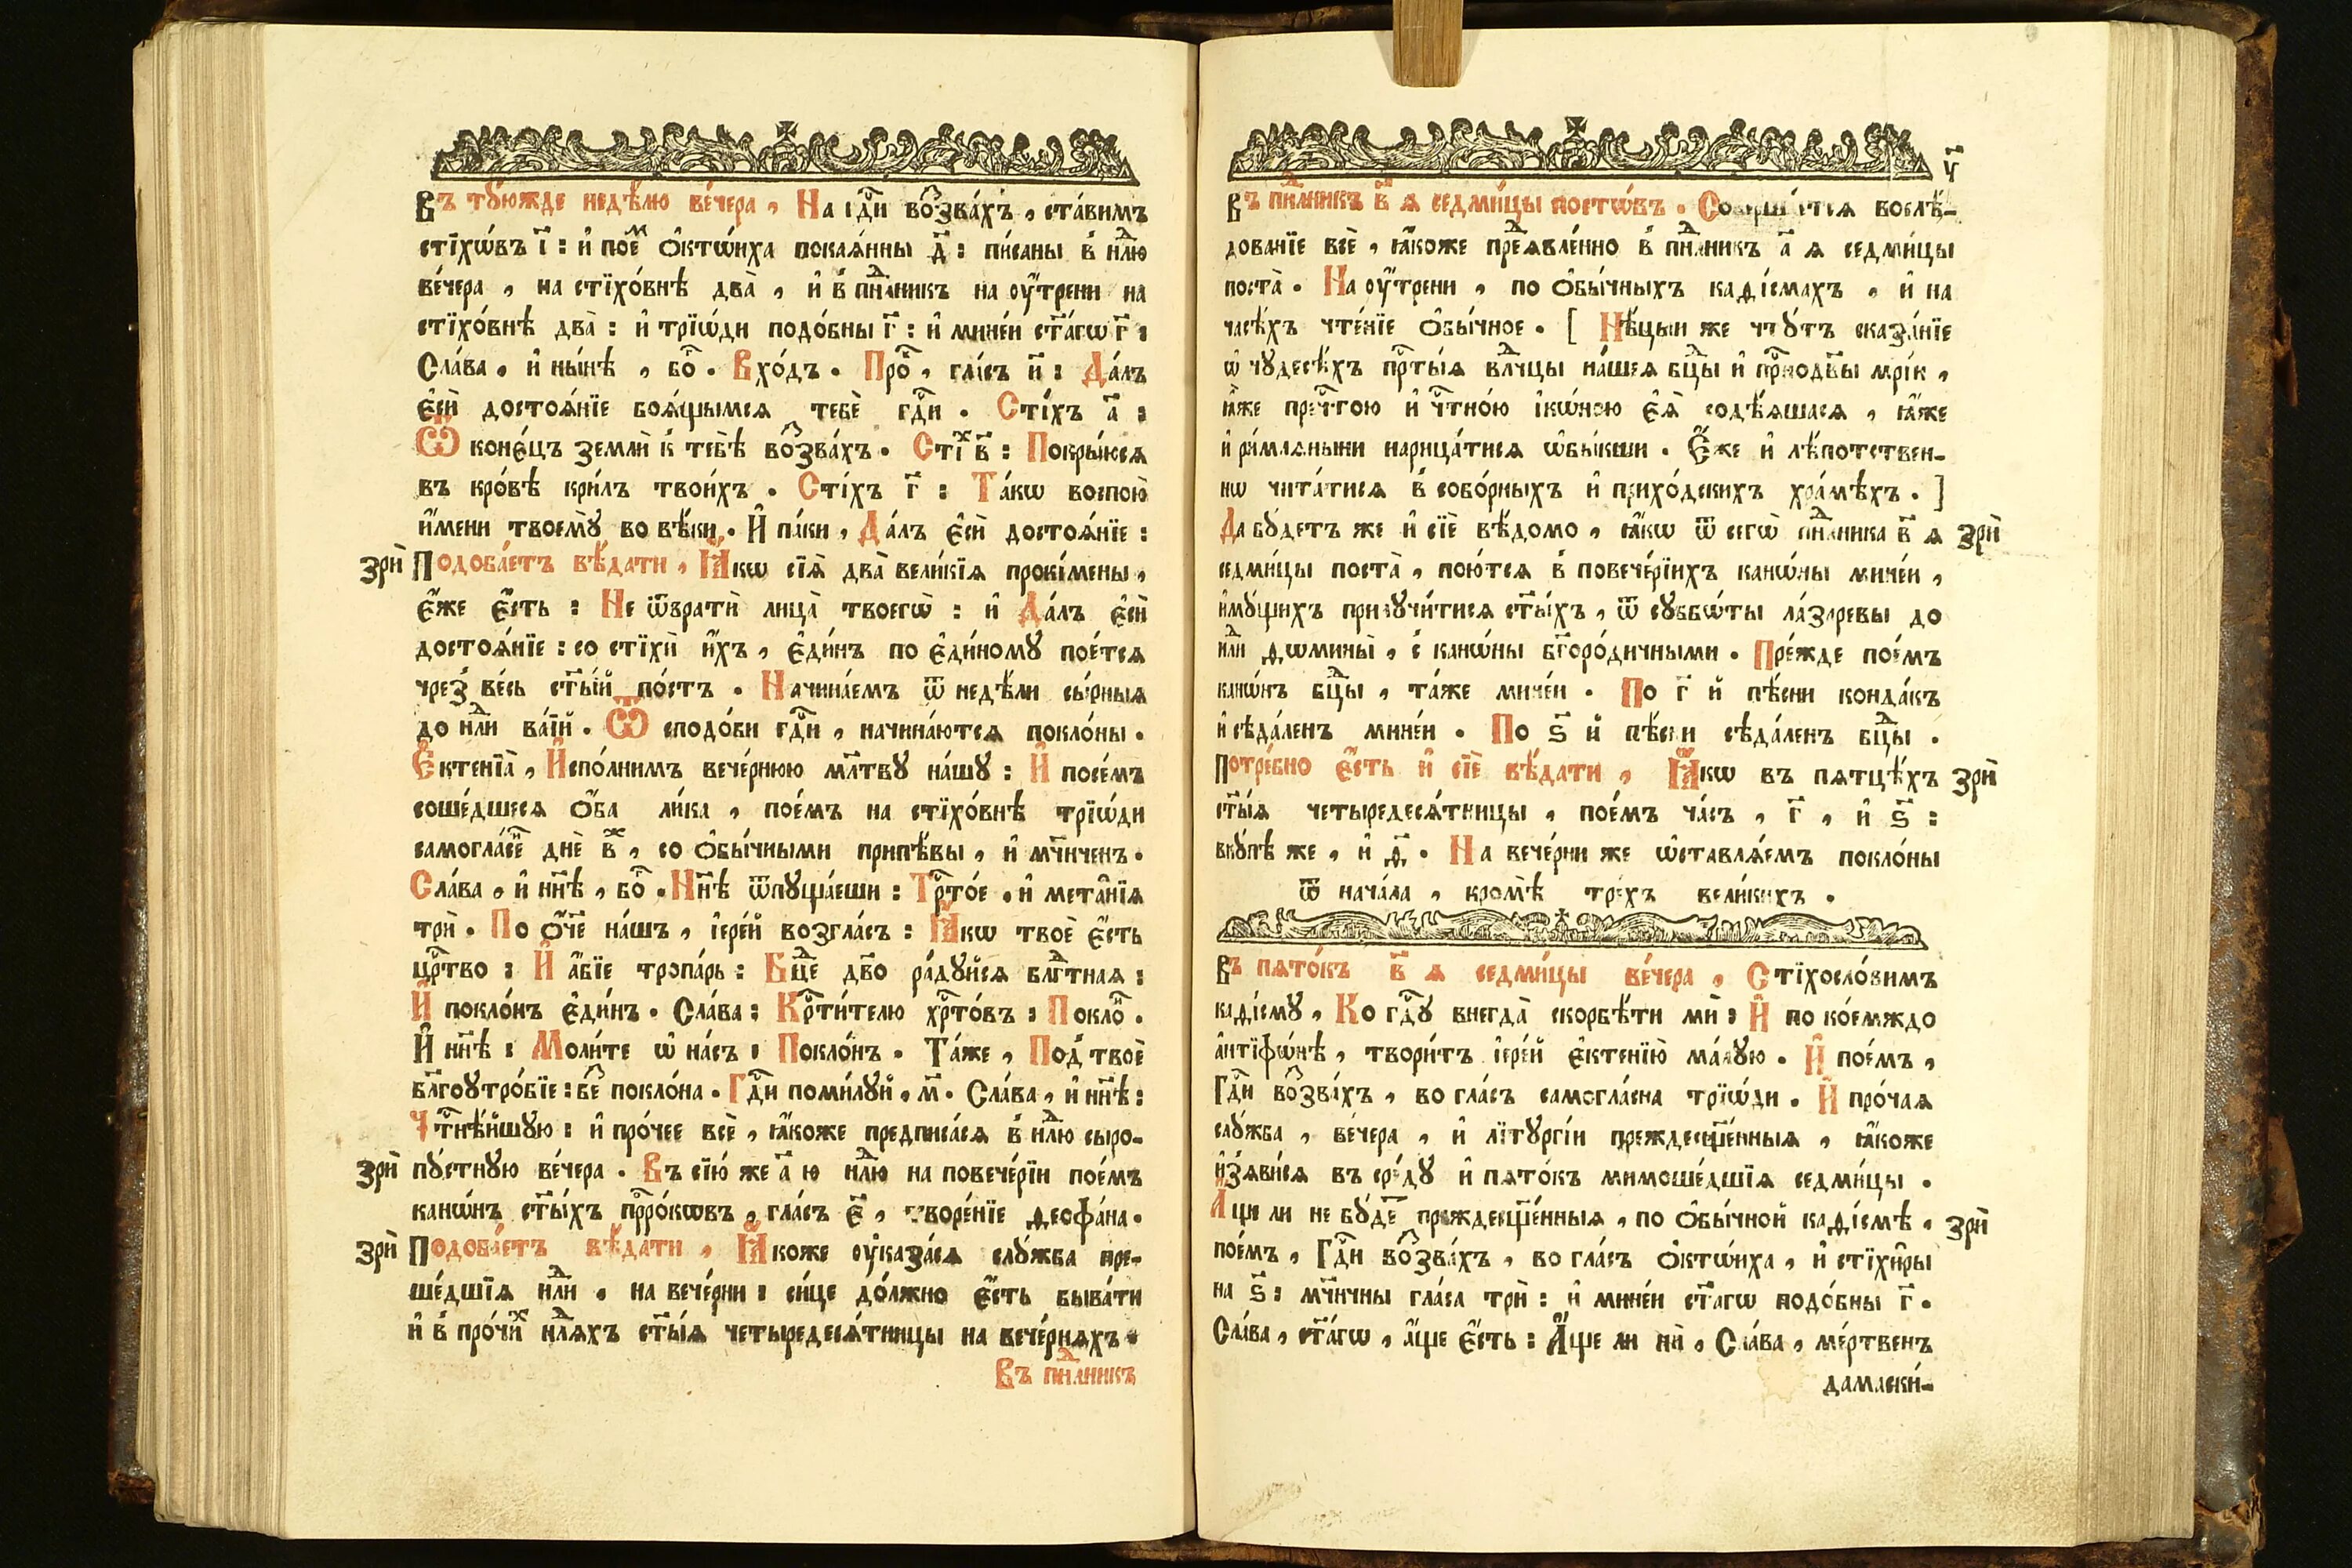 Въ тꙋ́южде недѣ́лю ве́чера , На гд҇и воззва́хъ , ста́вимъ
стїхѡ́въ і҃ : и҆ пое́м ѻ҆ктѡ́иха покаѧ́нны д҃ : пи́саны в̾ нлⷣю
ве́чера , на стїхо́внѣ два̀ , и҆ в̾ пнⷣлникъ на ѹ҆́трени на
стїхо́внѣ два̀ : и҆ трїѡ́ди подѡ́бны г҃ : и҆ мине́и ст҃а́гѡ г҃ :
Сла́ва , и҆ ны́нѣ , бо҇ . Вхо́дъ . Про҇ , гла́съ и҃ : Да́лъ
є҆сѝ достоѧ́нїе боѧ́щымсѧ тебѐ гд҇и . Сті́хъ а҃ :
Ѿ коне́цъ землѝ к̾ тебѣ̀ воззва́хъ . Стіⷯ в҃ : Покры́юсѧ
въ кро́вѣ кри́лъ твои́хъ . Сті́хъ г҃ : Та́кѡ воспою̀
и҆́мени твоемꙋ̀ во вѣ́ки . И҆ па́ки , Да́лъ є҆сѝ достоѧ́нїе :
зрѝ Подоба́етъ вѣ́дати , Ꙗ҆́кѡ сїѧ̑ два̀ вели́кїѧ проки́мены ,
є҆́же є҆́сть : Не ѿвратѝ лица̀ твоегѡ̀ : и҆ Да́лъ є҆сѝ
достоѧ́нїе : со стїхѝ и҆́хъ , є҆ди́нъ по є҆ди́номꙋ пое́тсѧ
чрез̾ ве́сь ст҃ы́й по́стъ . Начина́емъ ѿ недѣ́ли сы́рныѧ
до нлⷣи ва́їй . Ѿ сподо́би гд҇и , начина́ютсѧ покло́ны .
Є҆ктенїа̀ , И҆спо́лнимъ вече́рнюю мл҃твꙋ на́шꙋ : И҆ посе́мъ
соше́дшесѧ ѻ҆́ба ли́ка , пое́мъ на стїхо́внѣ трїѡ́ди
самогла́сеⷩ днѐ вⷤ , со ѻ҆бы́чными припѣ́вы , и҆ мч҃ниченъ .
Сла́ва , и҆ нн҃ѣ , бо҇ . Нн҃ѣ ѿпꙋща́еши : Трⷭ҇то́е , и҆ мета̑нїѧ
трѝ . По ѻ҆́ч҃е на́шъ , і҆ере́й возгла́съ : Ꙗ҆́кѡ твоѐ є҆́сть
црⷭ҇тво : И҆ а҆́бїе тропа́рь : Бцⷣе дв҃о ра́дꙋйсѧ блгⷣтнаѧ :
И҆ покло́нъ є҆ди́нъ . Сла́ва : Крⷭ҇ти́телю хрⷭ҇то́въ : Покло҇ .
И҆ нн҃ѣ : Моли́те ѡ҆ на́съ : Покло́нъ . Та́же , Под̾ твоѐ
бл҃гоꙋтро́бїе : беⷥ покло́на . Гд҇и поми́лꙋй , м҃ . Сла́ва , и҆ нн҃ѣ :
Чтⷭ҇нѣ́йшꙋю : и҆ про́чее всѐ , ꙗ҆́коже предписа́сѧ в̾ нлⷣю сыро-
зрѝ пꙋ́стнꙋю ве́чера . Въ сїю́ же а҃ ю нлⷣю на повече́рїи пое́мъ
канѡ́нъ ст҃ы́хъ прⷪ҇ро́кѡвъ , гла́съ є҃ , творе́нїе ѳеофа́на .
зрѝ Подоба́етъ вѣ́дати , Ꙗ҆́коже ѹ҆каза́сѧ слꙋ́жба пре-
ше́дшїѧ нлⷣи , на вече́рни : си́це до́лжно є҆́сть быва́ти
и҆ в̾ про́чиⷯ нлⷣѧхъ ст҃ы́ѧ четыредесѧ́тницы на вече́рнѧхъ .
Въ пнⷣлникъ
ч҃
Въ пнⷣлникъ в҃ ѧ седми́цы постѡ́въ . послѣ́-
дованїе всѐ , ꙗ҆́коже предⷣѧвле́нно в̾ пнⷣлникъ а҃ ѧ седми́цы
поста̀ . На ѹ҆́трени , по ѻ҆бы́чныхъ каѳі́смахъ , и҆ на
часѣ́хъ чте́нїе ѻ҆бы́чное . [ Нѣ́цыи же чтꙋ́тъ сказа́нїе
ѡ҆ чꙋдесѣ́хъ прⷭ҇ты́ѧ влⷣчцы на́шеѧ бцⷣы и҆ приⷭ҇нодв҃ы мр҃і́и ,
ꙗ҆́же пречⷭ҇тою и҆ чⷭ҇тно́ю і҆кѡ́ною є҆ѧ̀ содѣ́ѧшасѧ , ꙗ҆́же
и҆ ри́млѧныни нарица́тисѧ ѡ҆бы́кши . Є҆́же и҆ лѣ́потствен-
нѡ чита́тисѧ в̾ собо́рныхъ и҆ прихо́дскихъ хра́мѣхъ . ]
Да бꙋ́детъ же и҆ сїѐ вѣ́домо , ꙗ҆́кѡ ѿ сегѡ̀ пнⷣлника в҃ ѧ зрѝ
седми́цы поста̀ , пою́тсѧ в̾ повече́рїихъ канѡ́ны мине́и ,
и҆мꙋ́щихъ прилꙋчи́тисѧ ст҃ы́хъ , ѿ сꙋббѡ́ты ла́заревы до
нлⷣи ѳѡмины̀ , с̾ канѡ́ны бг҃оро́дичными . Пре́жде пое́мъ
канѡ́нъ бцⷣы , та́же мине́и . По г҃ й пѣ́сни конда́къ
и҆ сѣда́ленъ мине́и . По ѕ҃ й пѣ́сни сѣда́ленъ бцⷣы .
Потре́бно є҆́сть и҆ сїѐ вѣ́дати , Ꙗ҆́кѡ въ пѧтцѣ́хъ зрѝ
ст҃ы́ѧ четыредесѧ́тницы , пое́мъ ча́съ , г҃ , и҆ ѕ҃ :
вкꙋ́пѣ же , и҆ ѳ҃ . На вече́рни же ѡ҆ставлѧ́емъ покло́ны
ѿ нача́ла , кромѣ̀ тре́хъ вели́кихъ .
Въ пѧто́къ в҃ ѧ седми́цы ве́чера , Стїхосло́вимъ
каѳі́смꙋ , Ко гд҇ꙋ внегда̀ скорбѣ́ти мѝ : И҆ по ко́емждо
а҆нтїфѡ́нѣ , твори́тъ і҆ере́й є҆ктенїю̀ ма́лꙋю . И҆ пое́мъ ,
Гд҇и воззва́хъ , во гла́съ самогла́сна трїѡ́ди . И҆ про́чаѧ
слꙋ́жба , ве́чера , и҆ лїтꙋргі́и преждесщ҃е́нныѧ , ꙗ҆́коже
и҆з̾ѧви́сѧ въ сре́дꙋ и҆ пѧто́къ мимоше́дшїѧ седми́цы .
А҆́ще ли не бꙋ́деⷮ преждесщ҃е́нныѧ , по ѻ҆бы́чной каѳі́смѣ , зрѝ
пое́мъ , Гд҇и воззва́хъ , во гла́съ ѻ҆ктѡ́иха , и҆ стїхи̑ры
на ѕ҃ : мч҃ничны гла́са трѝ : и҆ мине́и ст҃а́гѡ подо́бны г҃ .
Сла́ва , ст҃а́гѡ , а҆́ще є҆́сть : А҆́ще ли нѝ , Сла́ва , ме́ртвенъ
дамаски́-